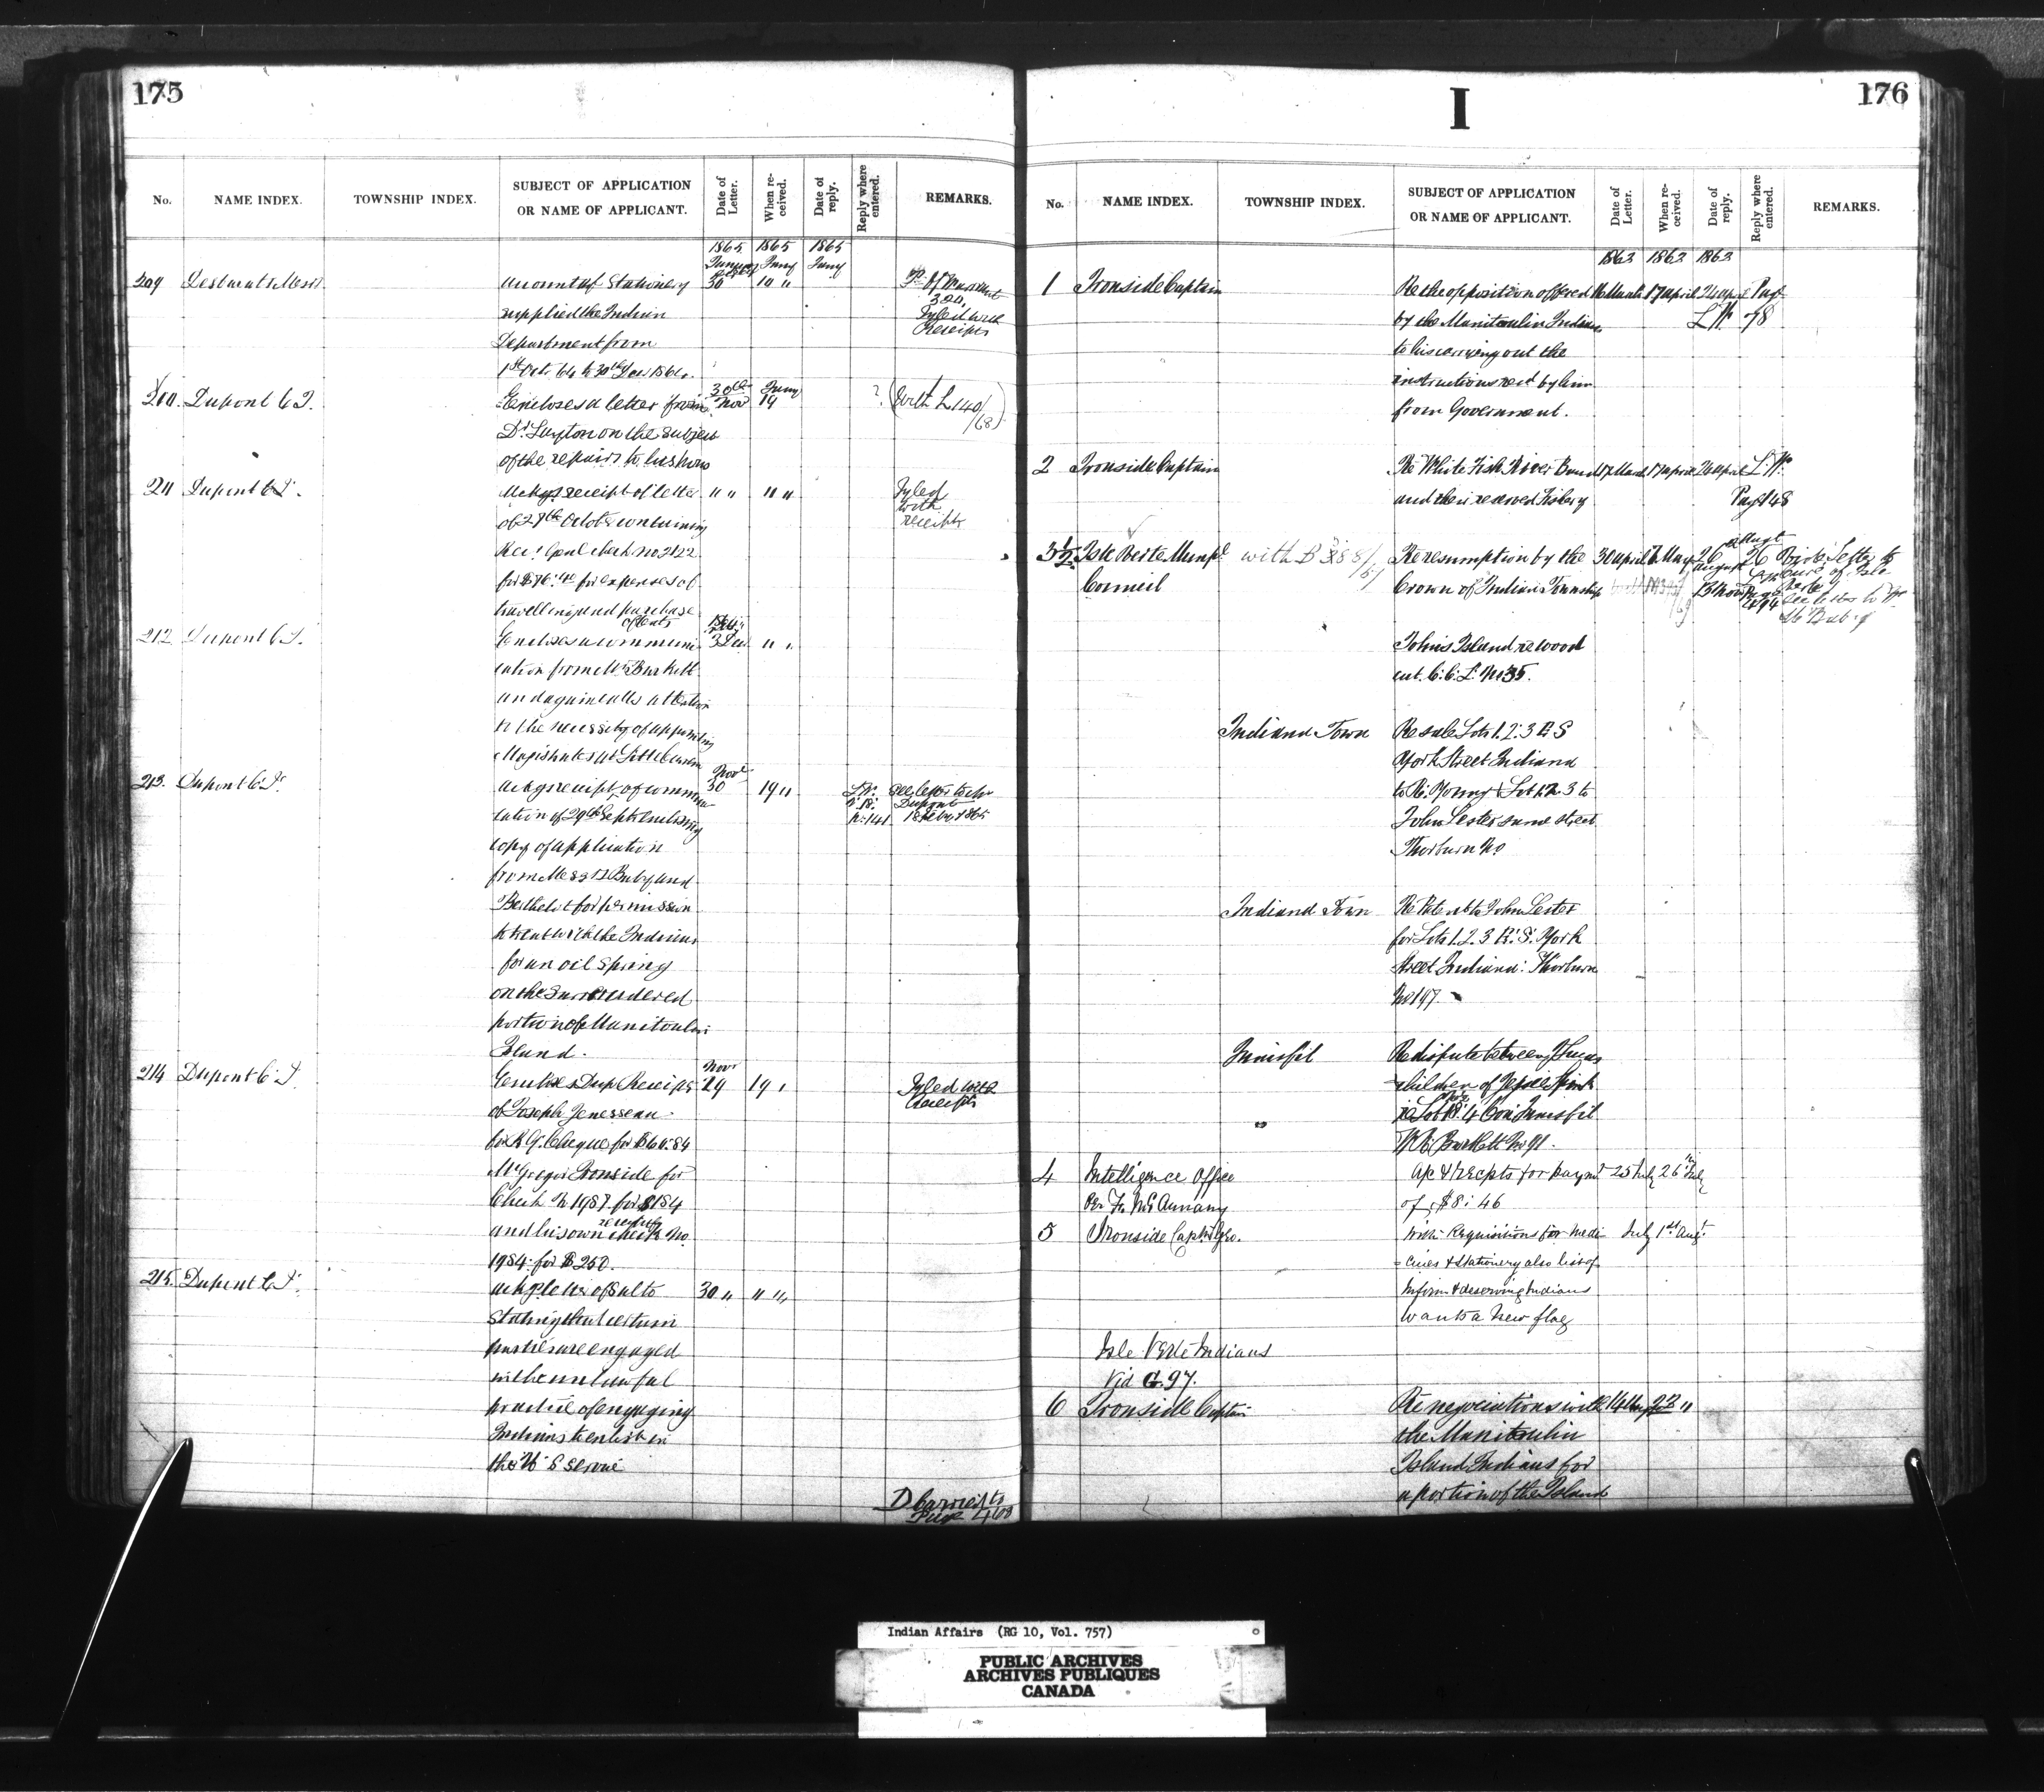 175
No. NAME INDEX. TOWNSHIP INDEX. SUBJECT OF APPLICATION OR NAME OF APPLICANT. Date of Letter. When re-ceived. Date of reply. Reply where entered. REMARKS.
1865 1865 1865
209 account of Stationery 30 10 "
supplied the Indian 320,
Department from Fyled with Receipts
1st Octr 64 to 30th Dec 1864.
210. Dupont C T. Encloses a letter from 30th Nov 19 ? (With L 140/68)
Dr Layton on the subject
of the repairs to his house
211 Dupont C T. Ackgs receipt of letter " " " " Fyled with receipts
of 27th Octobr containing
Rec. Genl check no 2122
for expenses of
travelling and purchase
of Oats
212 Dupont C T. Encloses a communi 3 Dec " "
cation from Mr Burkitt
and again calls attention
to the necessity of appointing
Magistrates at Little Current
213. Dupont C T. Ackgs receipt of commun 30 Novr 19 " see letter to Mr Dupont 18 Feby 1865
cation of 29th Sept enclosing
copy of application
from Messrs Baby and
Berthelot for permission
to treat with the Indians
for an oil spring
on the Surrendered
portion of Manitoulin
Island.
214 Dupont C. T. Encloses Dup Receipts Novr 29 19 " Fyled with Receipts
of Joseph Jenesseau
for R. G. Cheque for $60:84
McGregor Ironside for
Check N 1987 for $184
and his own receipt for check No.
1984 for $250.
215. Dupont C T. ackg letter of 30 " " "
Stating that certain
parties are engaged
in the unlawful
practice of engaging
Indians to enlist in
the U S Service
D Carried to Page 460
I
176
No. NAME INDEX. TOWNSHIP INDEX. SUBJECT OF APPLICATION OR NAME OF APPLICANT. Date of Letter. When re-ceived. Date of reply. Reply where entered. REMARKS.
1862 1862 1862
1 Ironside Captain Re the opposition offered 16 March 17 april 24 april Page
by the Manitoulin Indians L W 78
to his carrying out the
instructions recd by him
from Government.
2 Ironside Captain Re White Fish River Band 17 March 17 april 24 april L. W.
and their reserved Fishery Page 148
3 1/2 Isle Verte Municipl with B 388/51 Re resumption by the 30 april 7 May 26 August
Council Crown of Indian Township 13 Novr Page 494
Johns Island re wood
cut. C. C. L. No 35.
Indiana Town Re sale Lots 1. 2. 3 E S
York Street Indiana
to R. Young & Lot 1. 2. 3 to
John Lester same street
Thorburn No
Indiana Town Re Patent to John Lester
for Lots 1. 2. 3 E. S. York
Street Indiana: Thorburn
No 197
Innisfil Re dispute between
children of
re Lot 18. 4 Con Innisfil
W. R. Bartlett No 91.
4 Intelligence Office a/c & recepts for paymt 25 July 26th July
Per of $8:46
5 Ironside Captn Geo. with Requisitions for medi July 1st Augt
cines & Stationery also list of
infirm & deserving Indians
wants a new flag
Isle Verte Indians
Vid G. 97.
6 Ironside Captain Re negociations with 14 Aug 22 "
the Manitoulin
Island Indians for
a portion of the Island
Indian Affairs (RG 10, Vol. 757)
PUBLIC ARCHIVES
ARCHIVES PUBLIQUES
CANADA